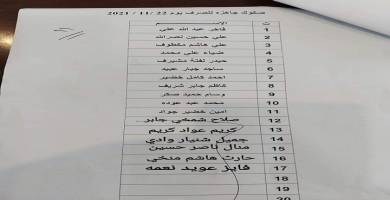 صكوك جاهزه للصرف يوم 22 / 11 / 2021
ت الاســـــم
1 فاخر عبد الله علي
2 علي حسين نصر الله
3 علي هاشم مكطوف
4 ضياء علي محمد
5 حيدر لفتة مشيرف
6 ساجد جبار عبيد
7 احمد كامل خضير
8 كاظم جابر شريف
9 وسام حميد صكر
10 محمد عبد عوده
11 امين خضير جواد
12 صلاح شمخي جابر
13 كريم عواد كريم
14 جميل شنيار وادي
15 منال ناصر حسين
16 حارث هاشم منخي
17 فايز عويد نعمه
18
19
20